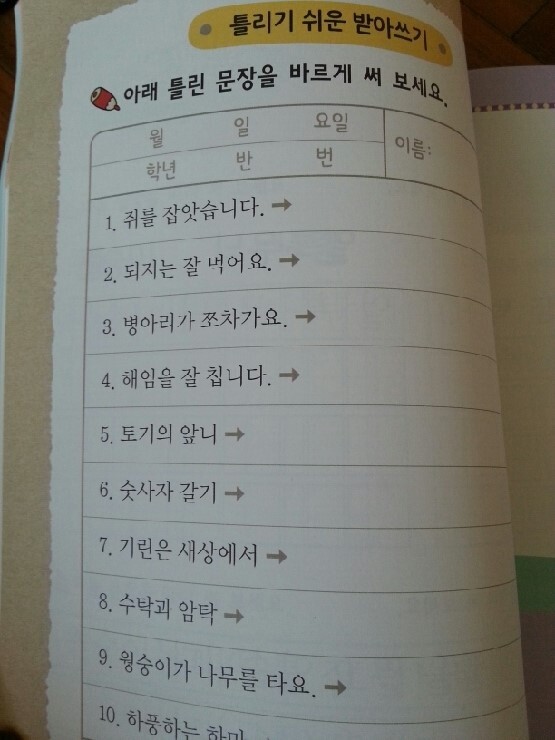 틀리기 쉬운 받아쓰기
아래 틀린 문장을 바르게 써 보세요.
월 일 요일
이름:
학년 반 번
1. 쥐를 잡앗습니다. →
2. 되지는 잘 먹어요. →
3. 병아리가 쪼차가요. →
4. 해임을 잘 칩니다. →
5. 토기의 앞니 →
6. 숫사자 갈기 →
7. 기린은 새상에서 →
8. 수탁과 암탁 →
9. 웡숭이가 나무를 타요. →
10. 하품하는 하마